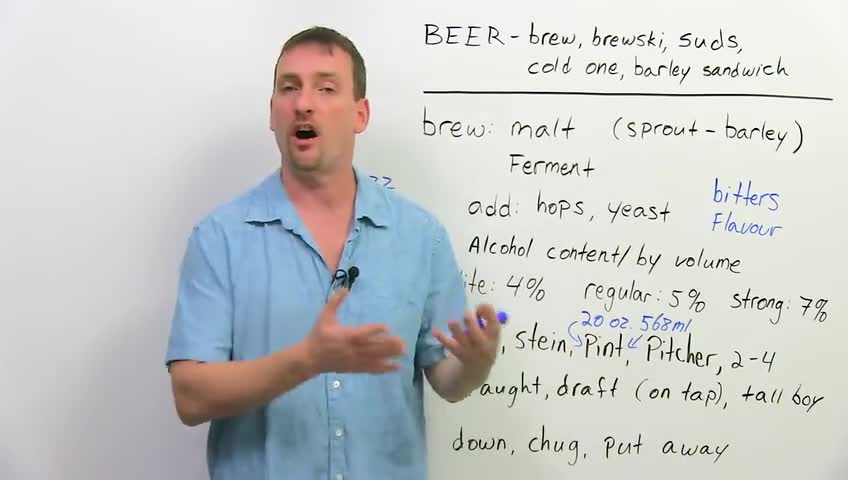 BEER - brew, brewski, suds,
cold one, barley sandwich
brew: malt (sprout - barley)
Ferment
add: hops, yeast
bitters
Flavour
Alcohol content/by volume
4% regular: 5% strong: 7%
20 oz. 568ml
stein, Pint, Pitcher, 2-4
draft (on tap), tall boy
down, chug, put away